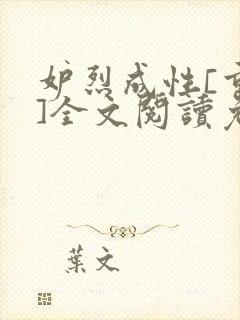 妒烈成性[重
]全文閱讀老
葉文